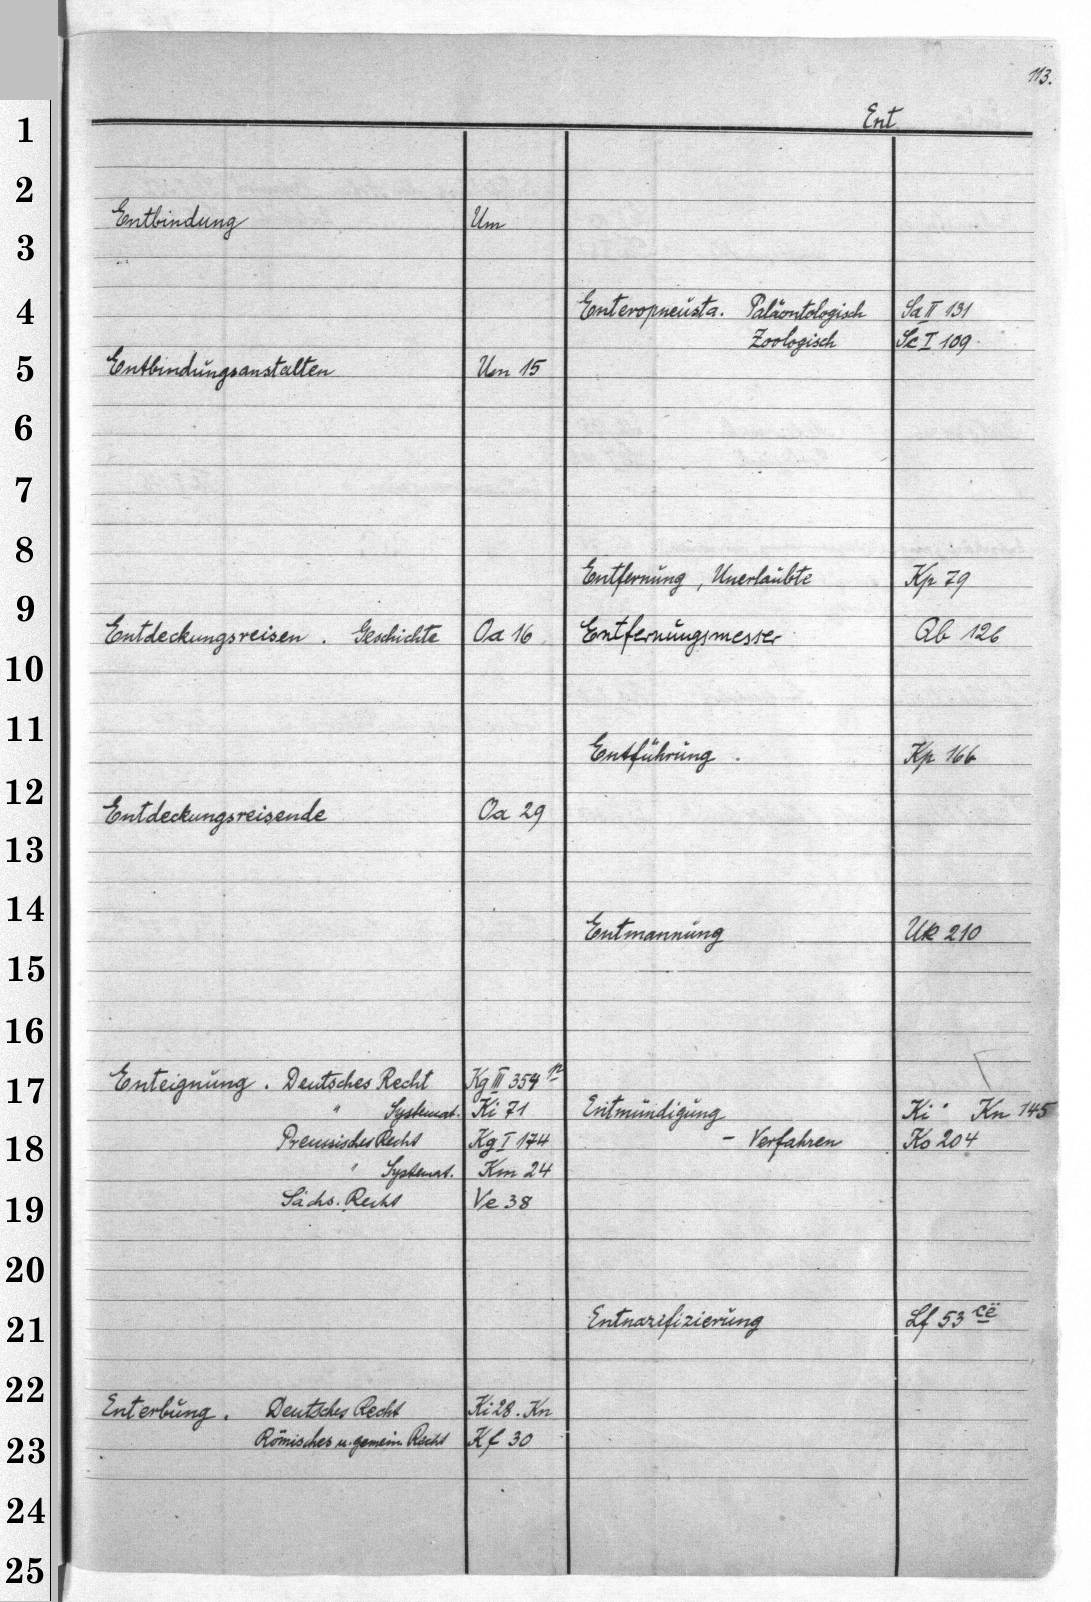 113.
Ent
Entbindung Um
Entbindungsanstalten Um 15
Entdeckungsreisen. Geschichte Oa 16
Entdeckungsreisende Oa 29
Enteignung. Deutsches Recht Kg III 354
" Systemat. Ki 71
Preussisches Recht Kg I 174
" Systemat. Km 24
Sächs. Recht Ve 38
Enterbung. Deutsches Recht Ki 28. Kn
Römisches u. gemein. Recht Kf 30
Enteropneusta. Paläontologisch Sa II 131
Zoologisch Sc I 109
Entfernung, Unerlaubte Kp 79
Entfernungsmesser Qb 126
Entführung. Kp 166
Entmannung Uk 210
Entmündigung Ki Kn 145
- Verfahren Ko 204
Entnazifizierung Lf 53 cë
1
2
3
4
5
6
7
8
9
10
11
12
13
14
15
16
17
18
19
20
21
22
23
24
25